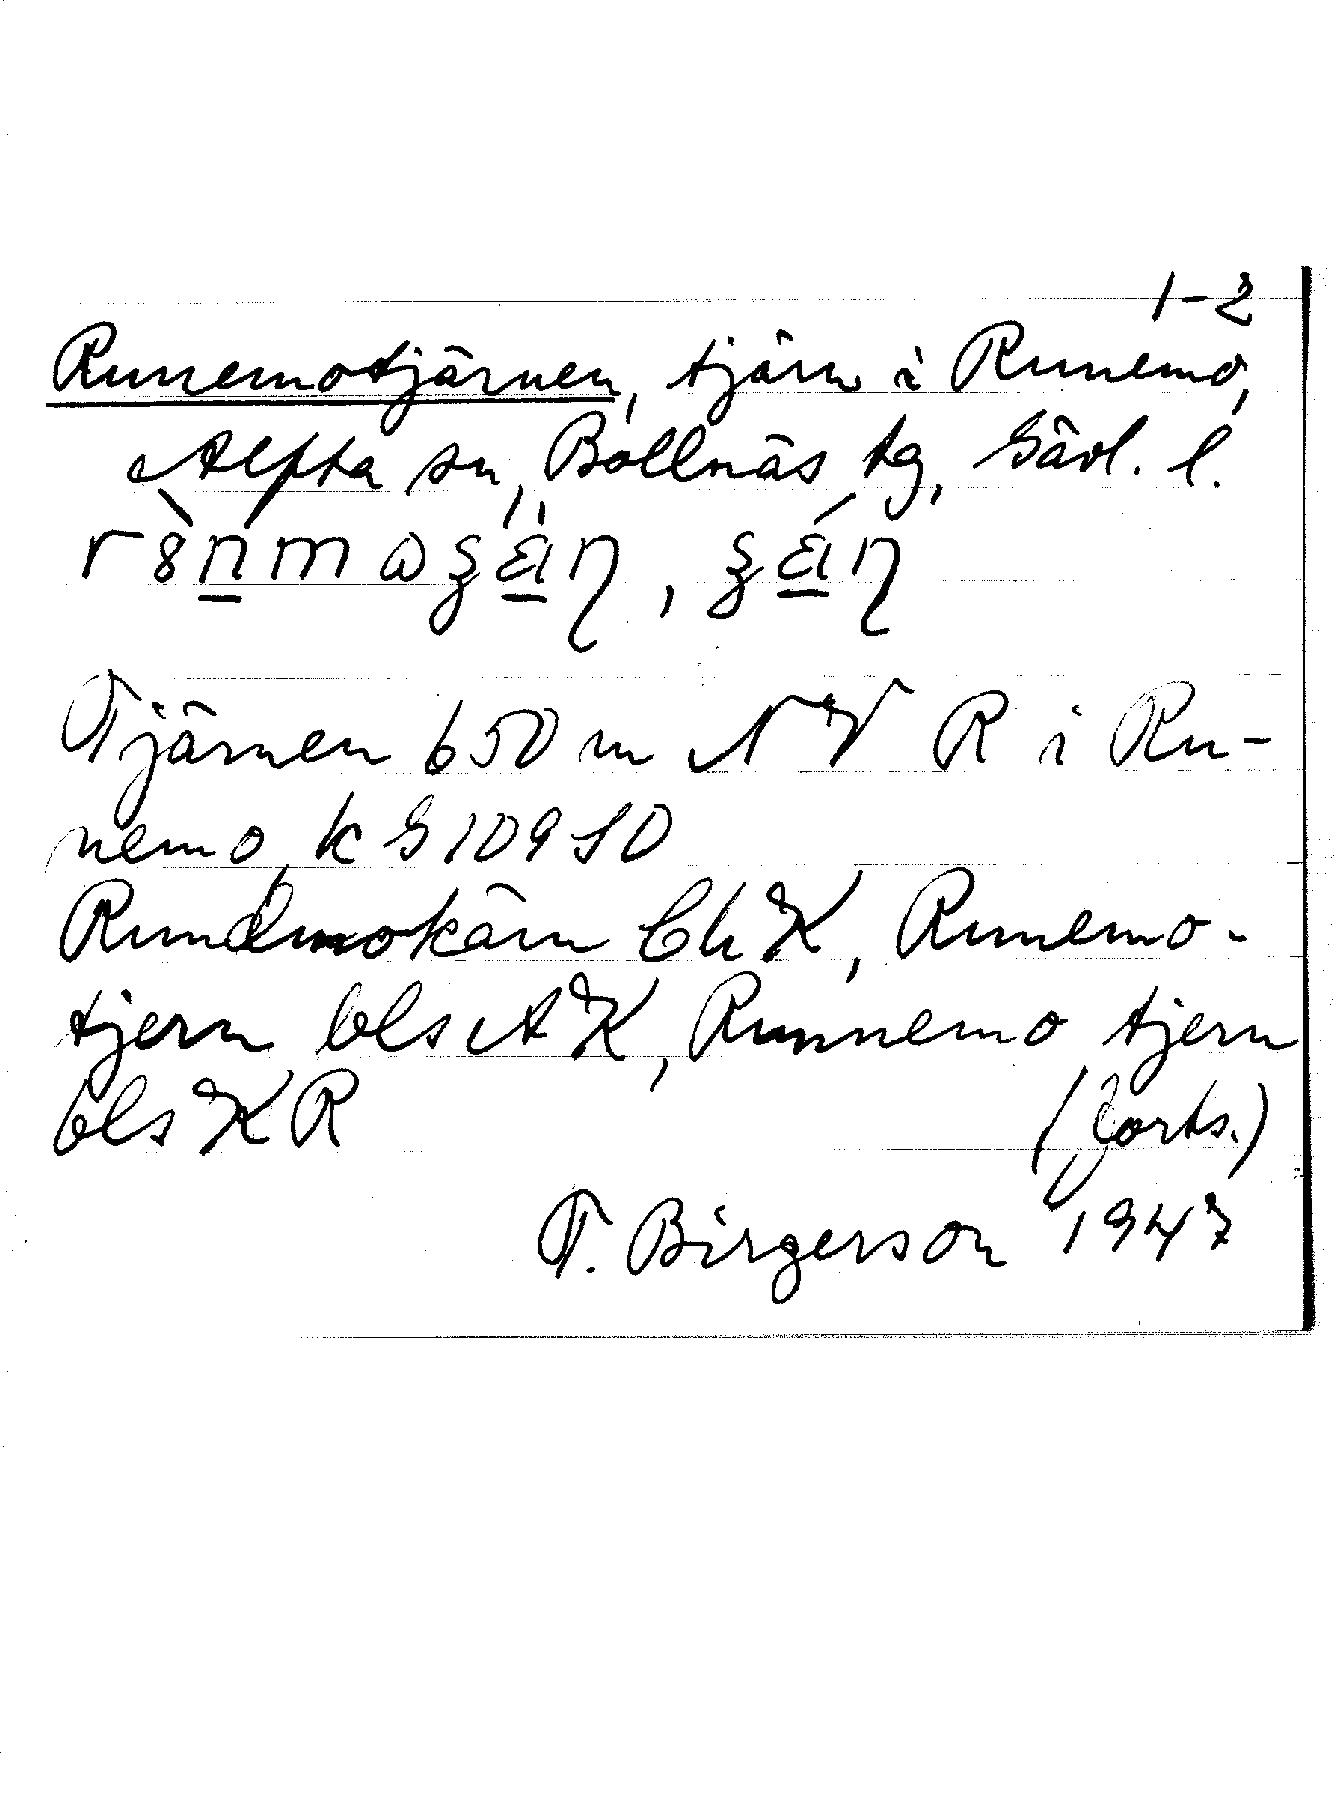 1-2
Runemotjärnen, tjärn i Runemo,
Alfta sn, Bollnäs tg, Gävl. l.
Tjärnen 650 m NV R i Ru-
nemo, k G 109 SO
Rundemokärn Ch K, Runemo-
tjern bls AK, Runnemo tjern
bls KR (forts.)
T. Birgerson 1947